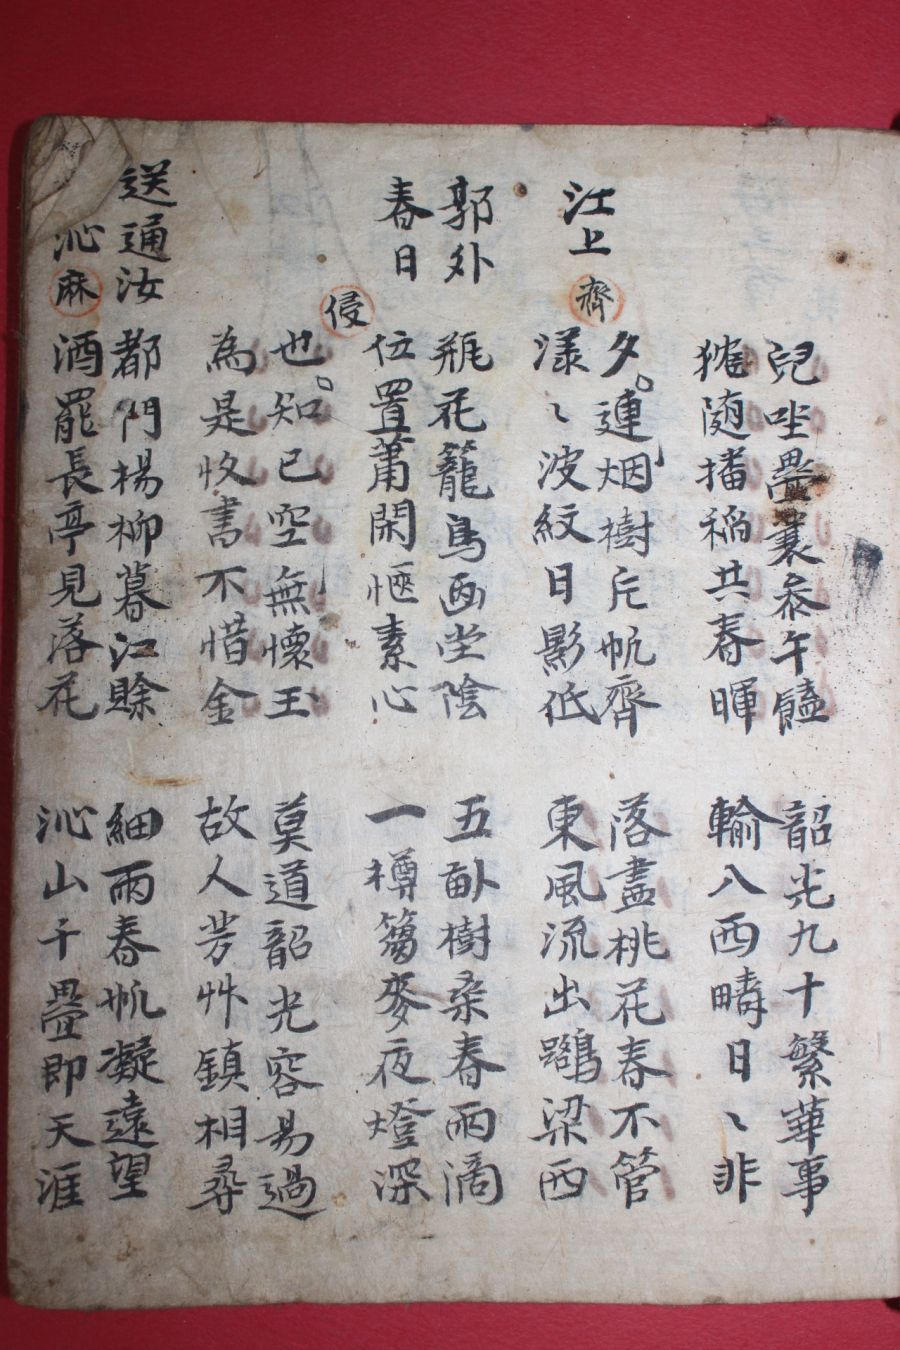 兒坐壘裏叅午饁
韶光九十繁華事
狵随播稻共春暉
輸入西疇日〻非
江上
齊
夕連烟樹片帆齊
落盡桃花春不管
漾〻波紋日影低
東風流出鸂梁西
郭外
春日
瓶花籠鳥画堂陰
五畝樹桑春雨滴
位置蕭閑愜素心
一樽篘麥夜燈深
侵
也知已空無懷王
莫道韶光容易過
為是收書不惜金
故人芳艸鎮相尋
送通汝
沁
麻
都門楊柳暮江賖
細雨春帆凝遠望
酒罷長亭見落花
沁山千疊即天涯